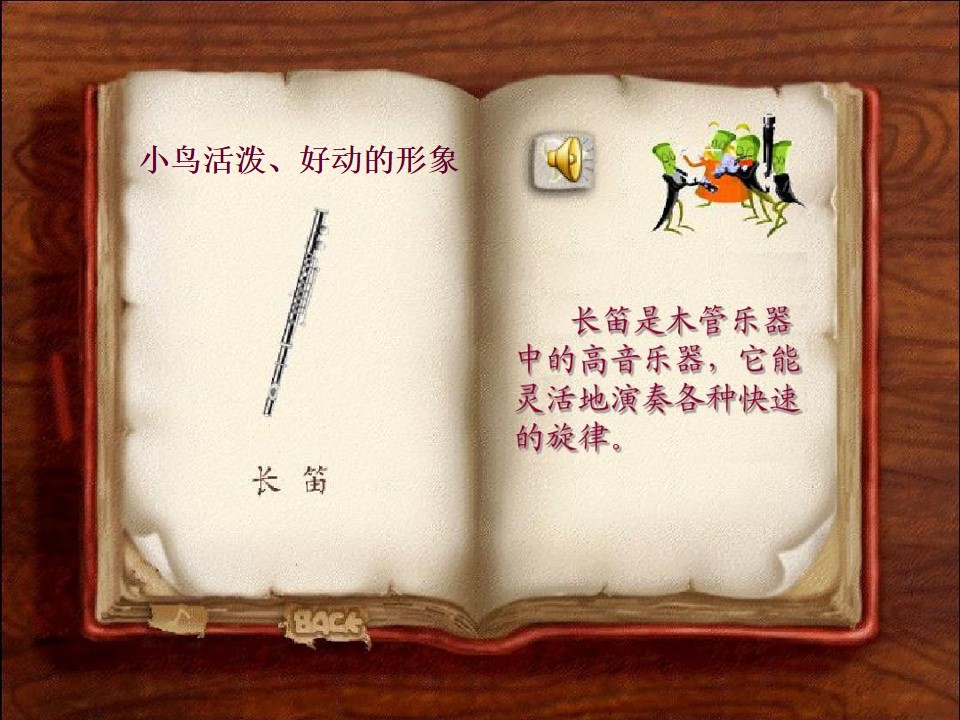 小鸟活泼、好动的形象
长 笛
长笛是木管乐器
中的高音乐器，它能
灵活地演奏各种快速
的旋律。
BACK